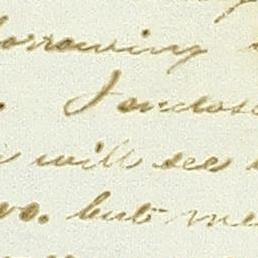 borrowing
I enclose
will see
but me